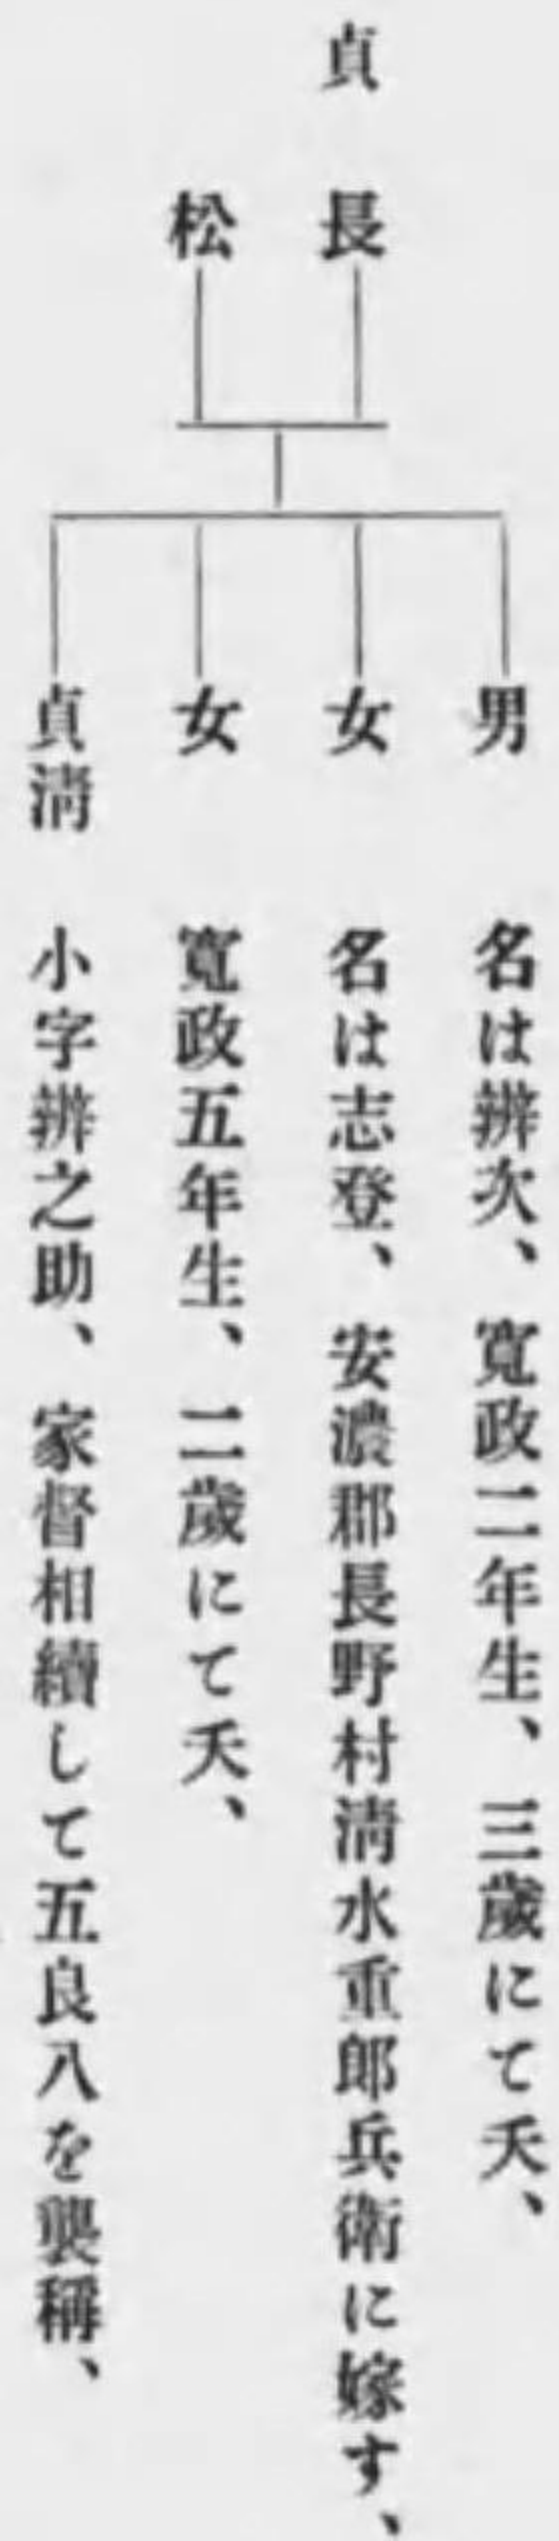 貞長
松
男 名は辨次、寬政二年生、三歲にて夭、
女 名は志登、安濃郡長野村淸水重郎兵衞に嫁す、
女 寬政五年生、二歲にて夭、
貞淸 小字辨之助、家督相續して五良八を襲稱、